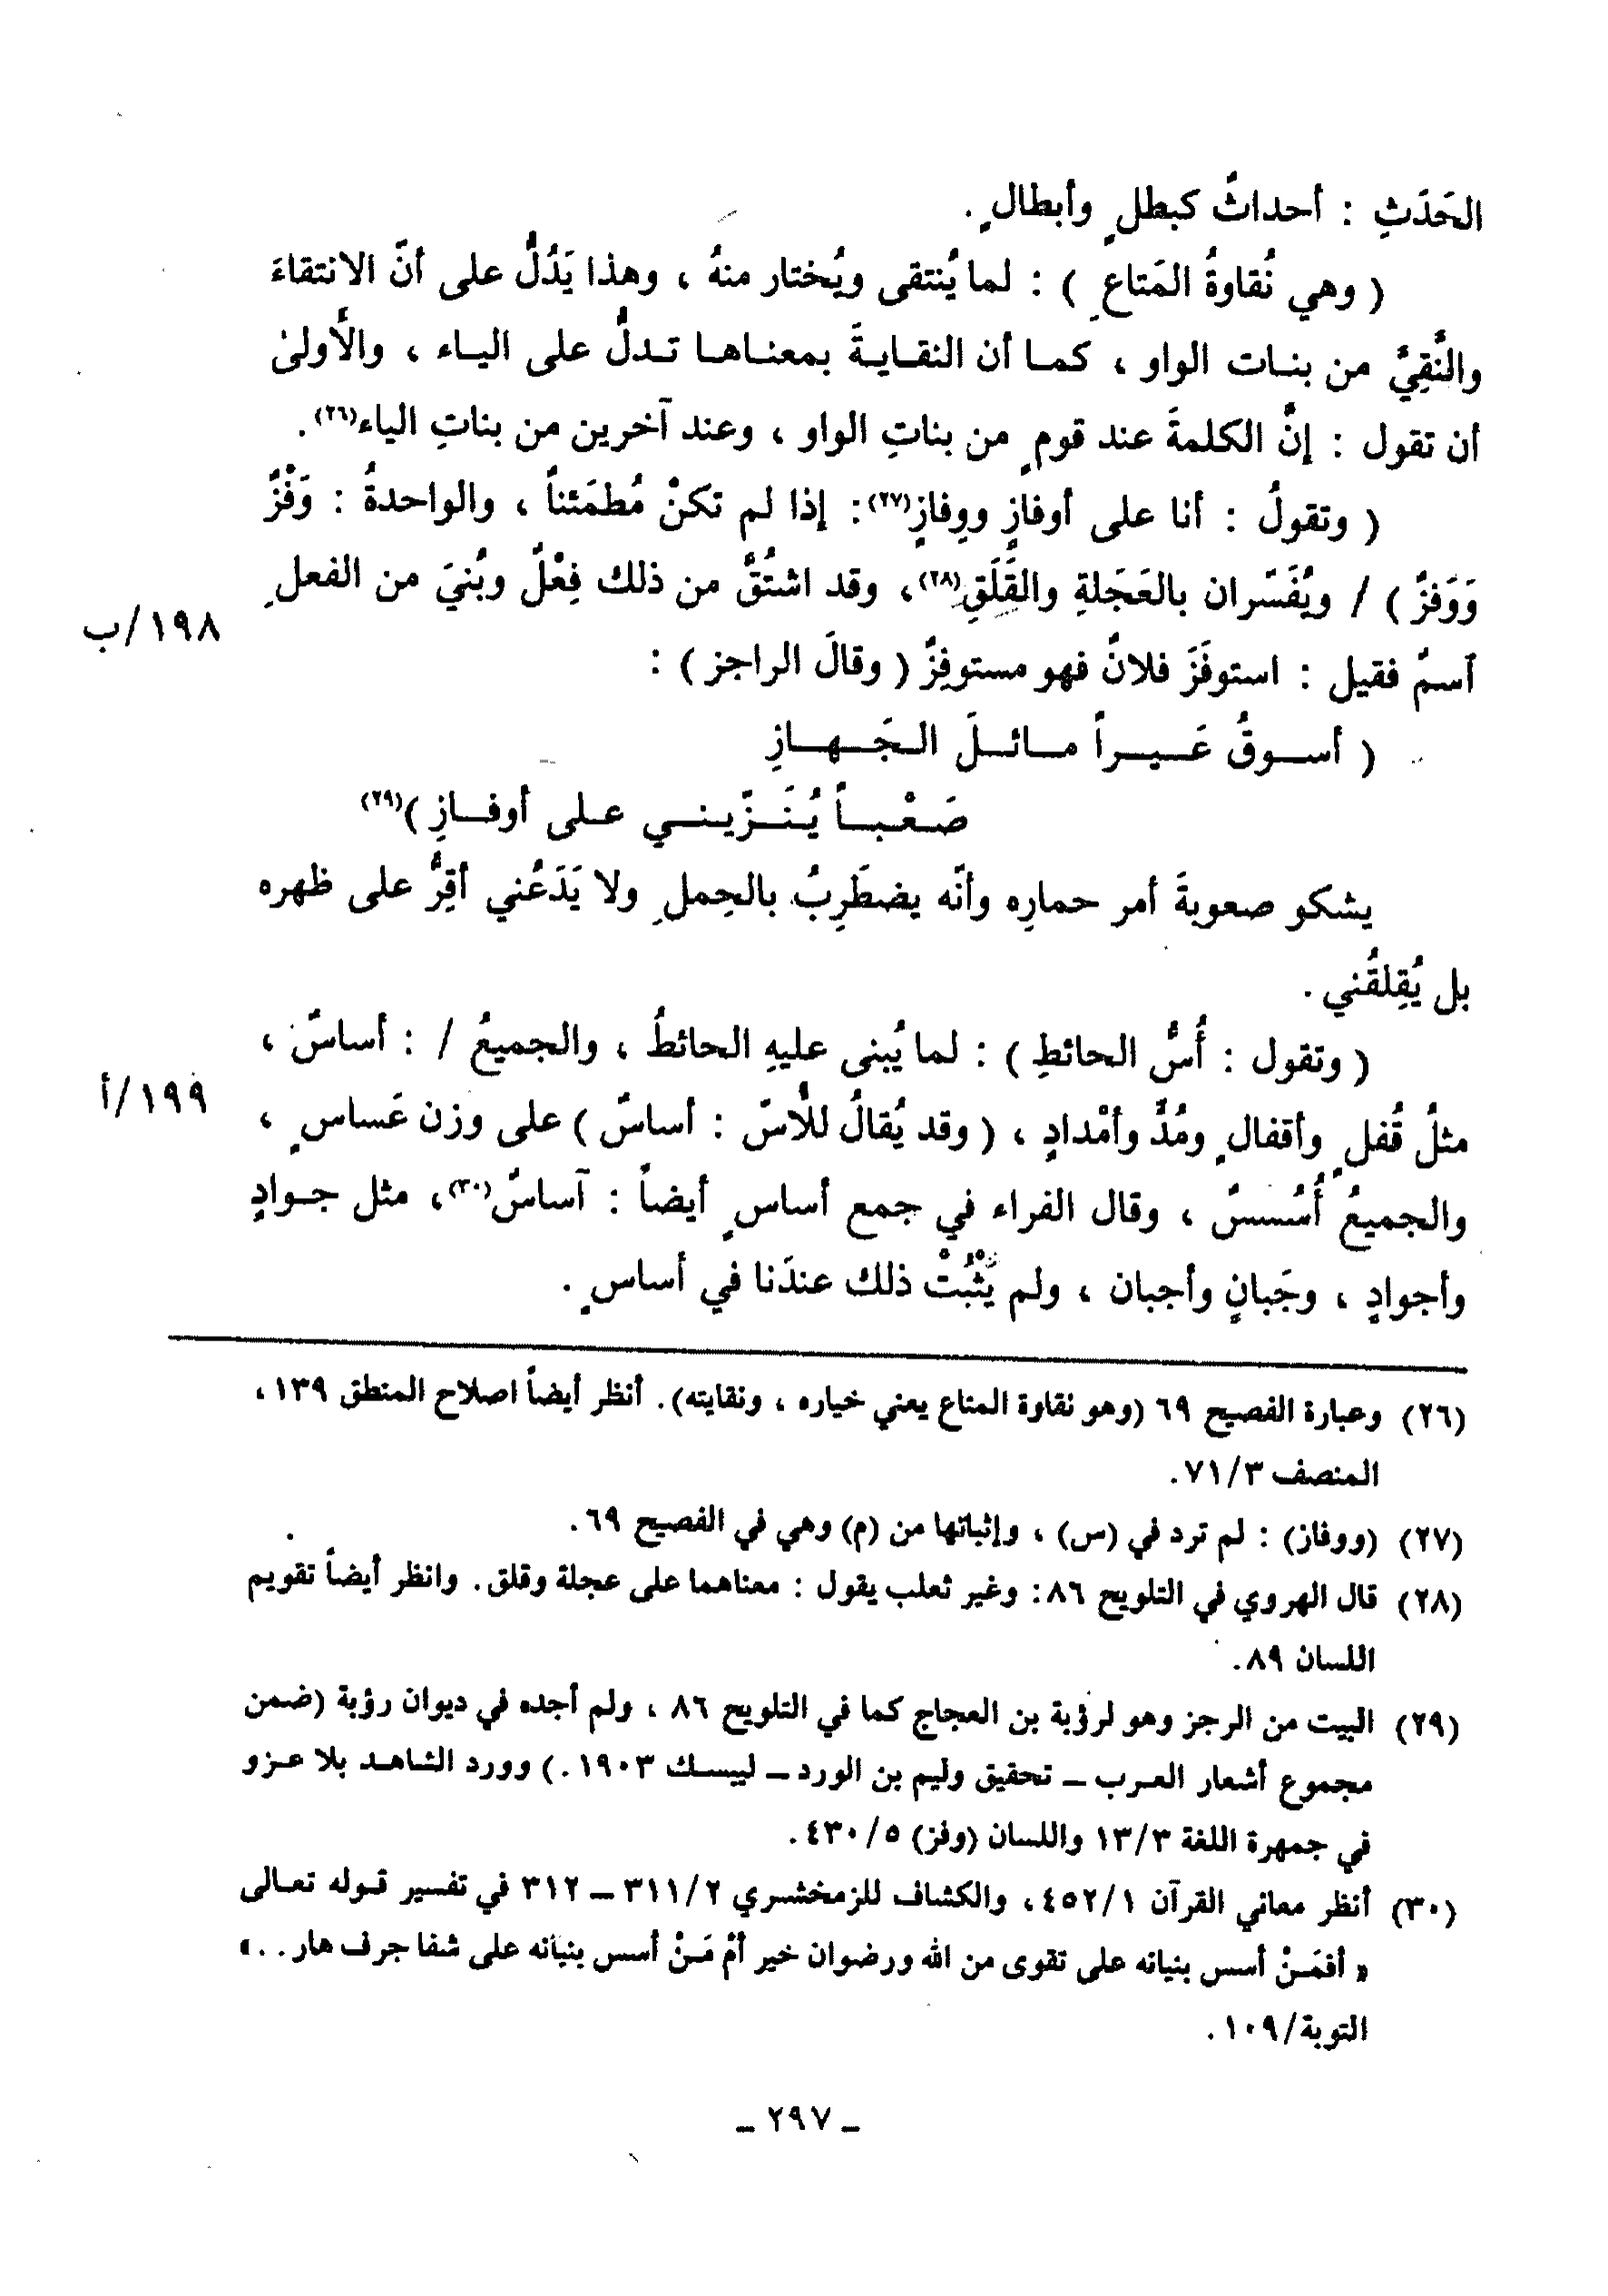 الحَدَثِ : أحداثٌ كبطلٍ وأبطالٍ .
( وهي نُقاوةُ المَتاعِ ) : لما يُنتقى ويُختار منهُ ، وهذا يَدُلُّ على أنّ الانتقاءَ
والنَّقِيَّ من بنـات الواو ، كمـا أن النقـايـةَ بمعنـاهـا تـدلُّ على اليـاء ، والأَولىٰ
أن تقول : إنَّ الكلمةَ عند قومٍ من بناتِ الواو ، وعند آخرين من بناتِ الياء(٢٦) .
( وتقولُ : أنا على أوفازٍ ووِفازٍ(٢٧) : إذا لم تكنْ مُطمَئناً ، والواحدةُ : وَفْزٌ
وَوَفزٌ ) / ويُفَسّران بالعَجَلةِ والقَلَقِ(٢٨) ، وقد اشتُقَّ من ذلك فِعْلٌ وبُنيَ من الفعلِ
١٩٨/ب
آسمٌ فقيل : استوفَزَ فلانٌ فهو مستوفِزٌ ( وقالَ الراجز ) :
( أسـوقُ عَـيـراً مـائـلَ الـجَـهـازِ
صَـعْـبـاً يُـنَـزّيـنـي عـلى أوفـازِ )(٢٩)
يشكو صعوبةَ أمر حمارِه وأنّه يضطَرِبُ بالحِملِ ولا يَدَعُني أقِرُّ على ظهره
بل يُقِلقُني .
( وتقول : أُسُّ الحائطِ ) : لما يُبنى عليهِ الحائطُ ، والجميعُ / : أساسٌ ،
١٩٩/أ
مثلُ قُفلٍ وأقفالٍ ومُدٍّ وأمْدادٍ ، ( وقد يُقالُ للأُسّ : أساسٌ ) على وزن عَساسٍ ،
والجميعُ أُسُسٌ ، وقال الفراء في جمع أساسٍ أيضاً : آساسٌ(٣٠) ، مثل جـوادٍ
وأجوادٍ ، وجَبانٍ وأجبان ، ولم يَثْبُتْ ذلك عندَنا في أساسٍ .
(٢٦) وعبارة الفصيح ٦٩ (وهو نقاوة المتاع يعني خياره ، ونقايته). أنظر أيضاً اصلاح المنطق ١٣٩ ،
المنصف ٧١/٣ .
(٢٧) (ووفاز) : لم ترد في (س) ، وإثباتها من (م) وهي في الفصيح ٦٩.
(٢٨) قال الهروي في التلويح ٨٦ : وغير ثعلب يقول : معناهما على عجلة وقلق. وانظر أيضاً تقويم
اللسان ٨٩.
(٢٩) البيت من الرجز وهو لرؤبة بن العجاج كما في التلويح ٨٦ ، ولم أجده في ديوان رؤبة (ضمن
مجموع أشعار العـرب ـ تحقيق وليم بن الورد ـ ليبسـك ١٩٠٣.) وورد الشاهـد بلا عـزو
في جمهرة اللغة ١٣/٣ واللسان (وفز) ٤٣٠/٥ .
(٣٠) أنظر معاني القرآن ٤٥٢/١ ، والكشاف للزمخشري ٣١١/٢ ـ ٣١٢ في تفسير قـوله تعـالى
« أفمَـنْ أسس بنيانه على تقوى من الله ورضوان خير أمْ مَـنْ أسس بنيانه على شفا جرف هار . . »
التوبة/١٠٩ .
ـ ٢٩٧ ـ